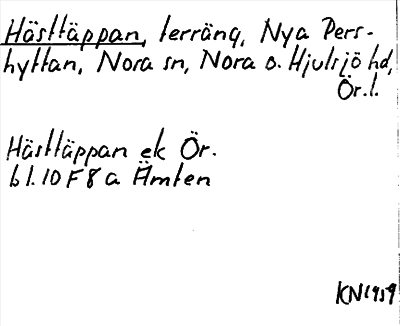 Hästtäppan, terräng, Nya Pers-
hyttan, Nora sn, Nora o. Hjulsjö hd,
Ör.l.
Hästtäppan ek Ör.
bl. 10 F 8 a Ämten
KN 1959